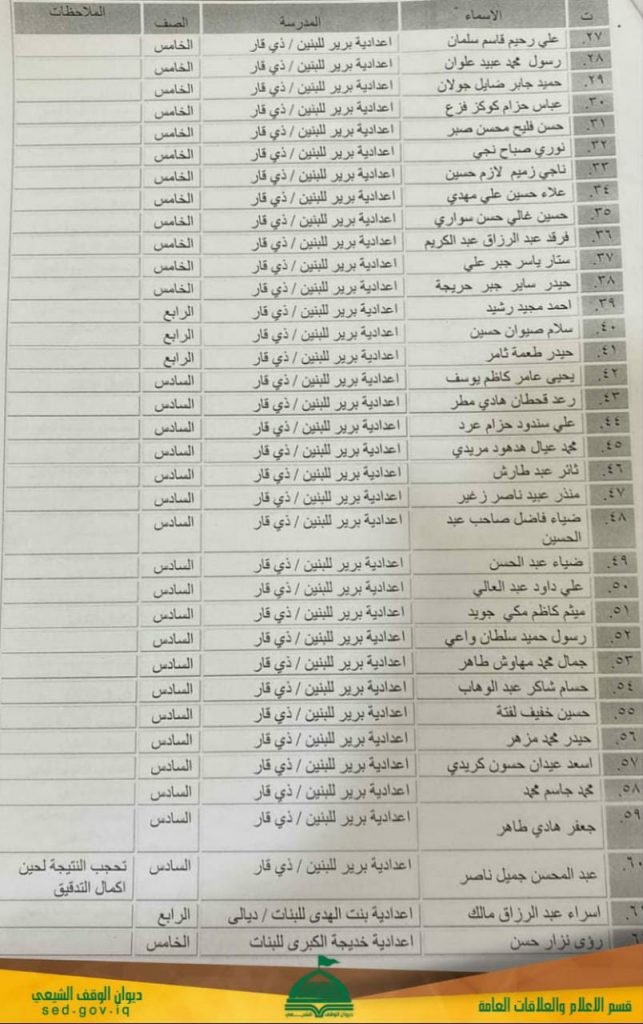 ت الاسماء المدرسة الصف الملاحظات
٢٧. علي رحيم قاسم سلمان اعدادية برير للبنين / ذي قار الخامس
٢٨. رسول محمد عبيد علوان اعدادية برير للبنين / ذي قار الخامس
٢٩. حميد جابر ضايل جولان اعدادية برير للبنين / ذي قار الخامس
٣٠. عباس حزام كوكز فزع اعدادية برير للبنين / ذي قار الخامس
٣١. حسن فليح محسن صبر اعدادية برير للبنين / ذي قار الخامس
٣٢. نوري صباح نجي اعدادية برير للبنين / ذي قار الخامس
٣٣. ناجي زميم لازم حسين اعدادية برير للبنين / ذي قار الخامس
٣٤. علاء حسين علي مهدي اعدادية برير للبنين / ذي قار الخامس
٣٥. حسين غالي حسن سواري اعدادية برير للبنين / ذي قار الخامس
٣٦. فرقد عبد الرزاق عبد الكريم اعدادية برير للبنين / ذي قار الخامس
٣٧. ستار ياسر جبر علي اعدادية برير للبنين / ذي قار الخامس
٣٨. حيدر ساير جبر حريجة اعدادية برير للبنين / ذي قار الخامس
٣٩. احمد مجيد رشيد اعدادية برير للبنين / ذي قار الرابع
٤٠. سلام صيوان حسين اعدادية برير للبنين / ذي قار الرابع
٤١. حيدر طعمة ثامر اعدادية برير للبنين / ذي قار الرابع
٤٢. يحيى عامر كاظم يوسف اعدادية برير للبنين / ذي قار السادس
٤٣. رعد قحطان هادي مطر اعدادية برير للبنين / ذي قار السادس
٤٤. علي سندود حزام عرد اعدادية برير للبنين / ذي قار السادس
٤٥. محمد عيال هدهود مريدي اعدادية برير للبنين / ذي قار السادس
٤٦. ثائر عبد طارش اعدادية برير للبنين / ذي قار السادس
٤٧. منذر عبيد ناصر زغير اعدادية برير للبنين / ذي قار السادس
٤٨. ضياء فاضل صاحب عبد اعدادية برير للبنين / ذي قار السادس
الحسين
٤٩. ضياء عبد الحسن اعدادية برير للبنين / ذي قار السادس
٥٠. علي داود عبد العالي اعدادية برير للبنين / ذي قار السادس
٥١. ميثم كاظم مكي جويد اعدادية برير للبنين / ذي قار السادس
٥٢. رسول حميد سلطان واعي اعدادية برير للبنين / ذي قار السادس
٥٣. جمال محمد مهاوش طاهر اعدادية برير للبنين / ذي قار السادس
٥٤. حسام شاكر عبد الوهاب اعدادية برير للبنين / ذي قار السادس
٥٥. حسين خفيف لفتة اعدادية برير للبنين / ذي قار السادس
٥٦. حيدر محمد مزهر اعدادية برير للبنين / ذي قار السادس
٥٧. اسعد عيدان حسون كريدي اعدادية برير للبنين / ذي قار السادس
٥٨. محمد جاسم محمد اعدادية برير للبنين / ذي قار السادس
٥٩. جعفر هادي طاهر اعدادية برير للبنين / ذي قار السادس
٦٠. عبد المحسن جميل ناصر اعدادية برير للبنين / ذي قار السادس تحجب النتيجة لحين
اكمال التدقيق
اسراء عبد الرزاق مالك اعدادية بنت الهدى للبنات / ديالى الرابع
رؤى نزار حسن اعدادية خديجة الكبرى للبنات الخامس
قسم الاعلام والعلاقات العامة
ديوان الوقف الشيعي
ديوان الوقف الشيعي
sed.gov.iq